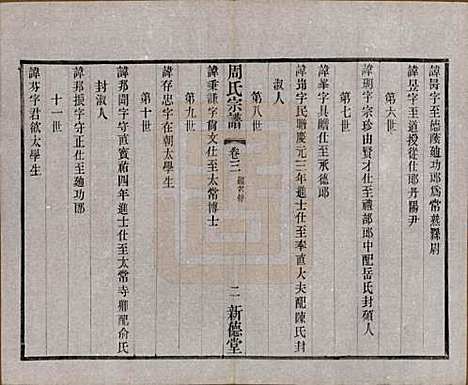 諱勗字至德蔭迪功郎爲常熟縣尉
諱昱字至道授從仕郎丹陽尹
第六世
諱琪字宗珍由賢才仕至禮部郎中配岳氏封碩人
第七世
諱峯字具瞻仕至承德郎
諱峁字民瞻慶元三年進士仕至奉直大夫配陳氏封
淑人
第八世
諱秉謙字尚文仕至太常博士
周氏宗譜
卷三
二
新德堂
第九世
諱存忠字在朝太學生
第十世
諱邦聞字守直寶祐四年進士仕至太常寺卿配俞氏
封淑人
諱邦振字守正仕至迪功郎
十一世
諱芬字君馥太學生